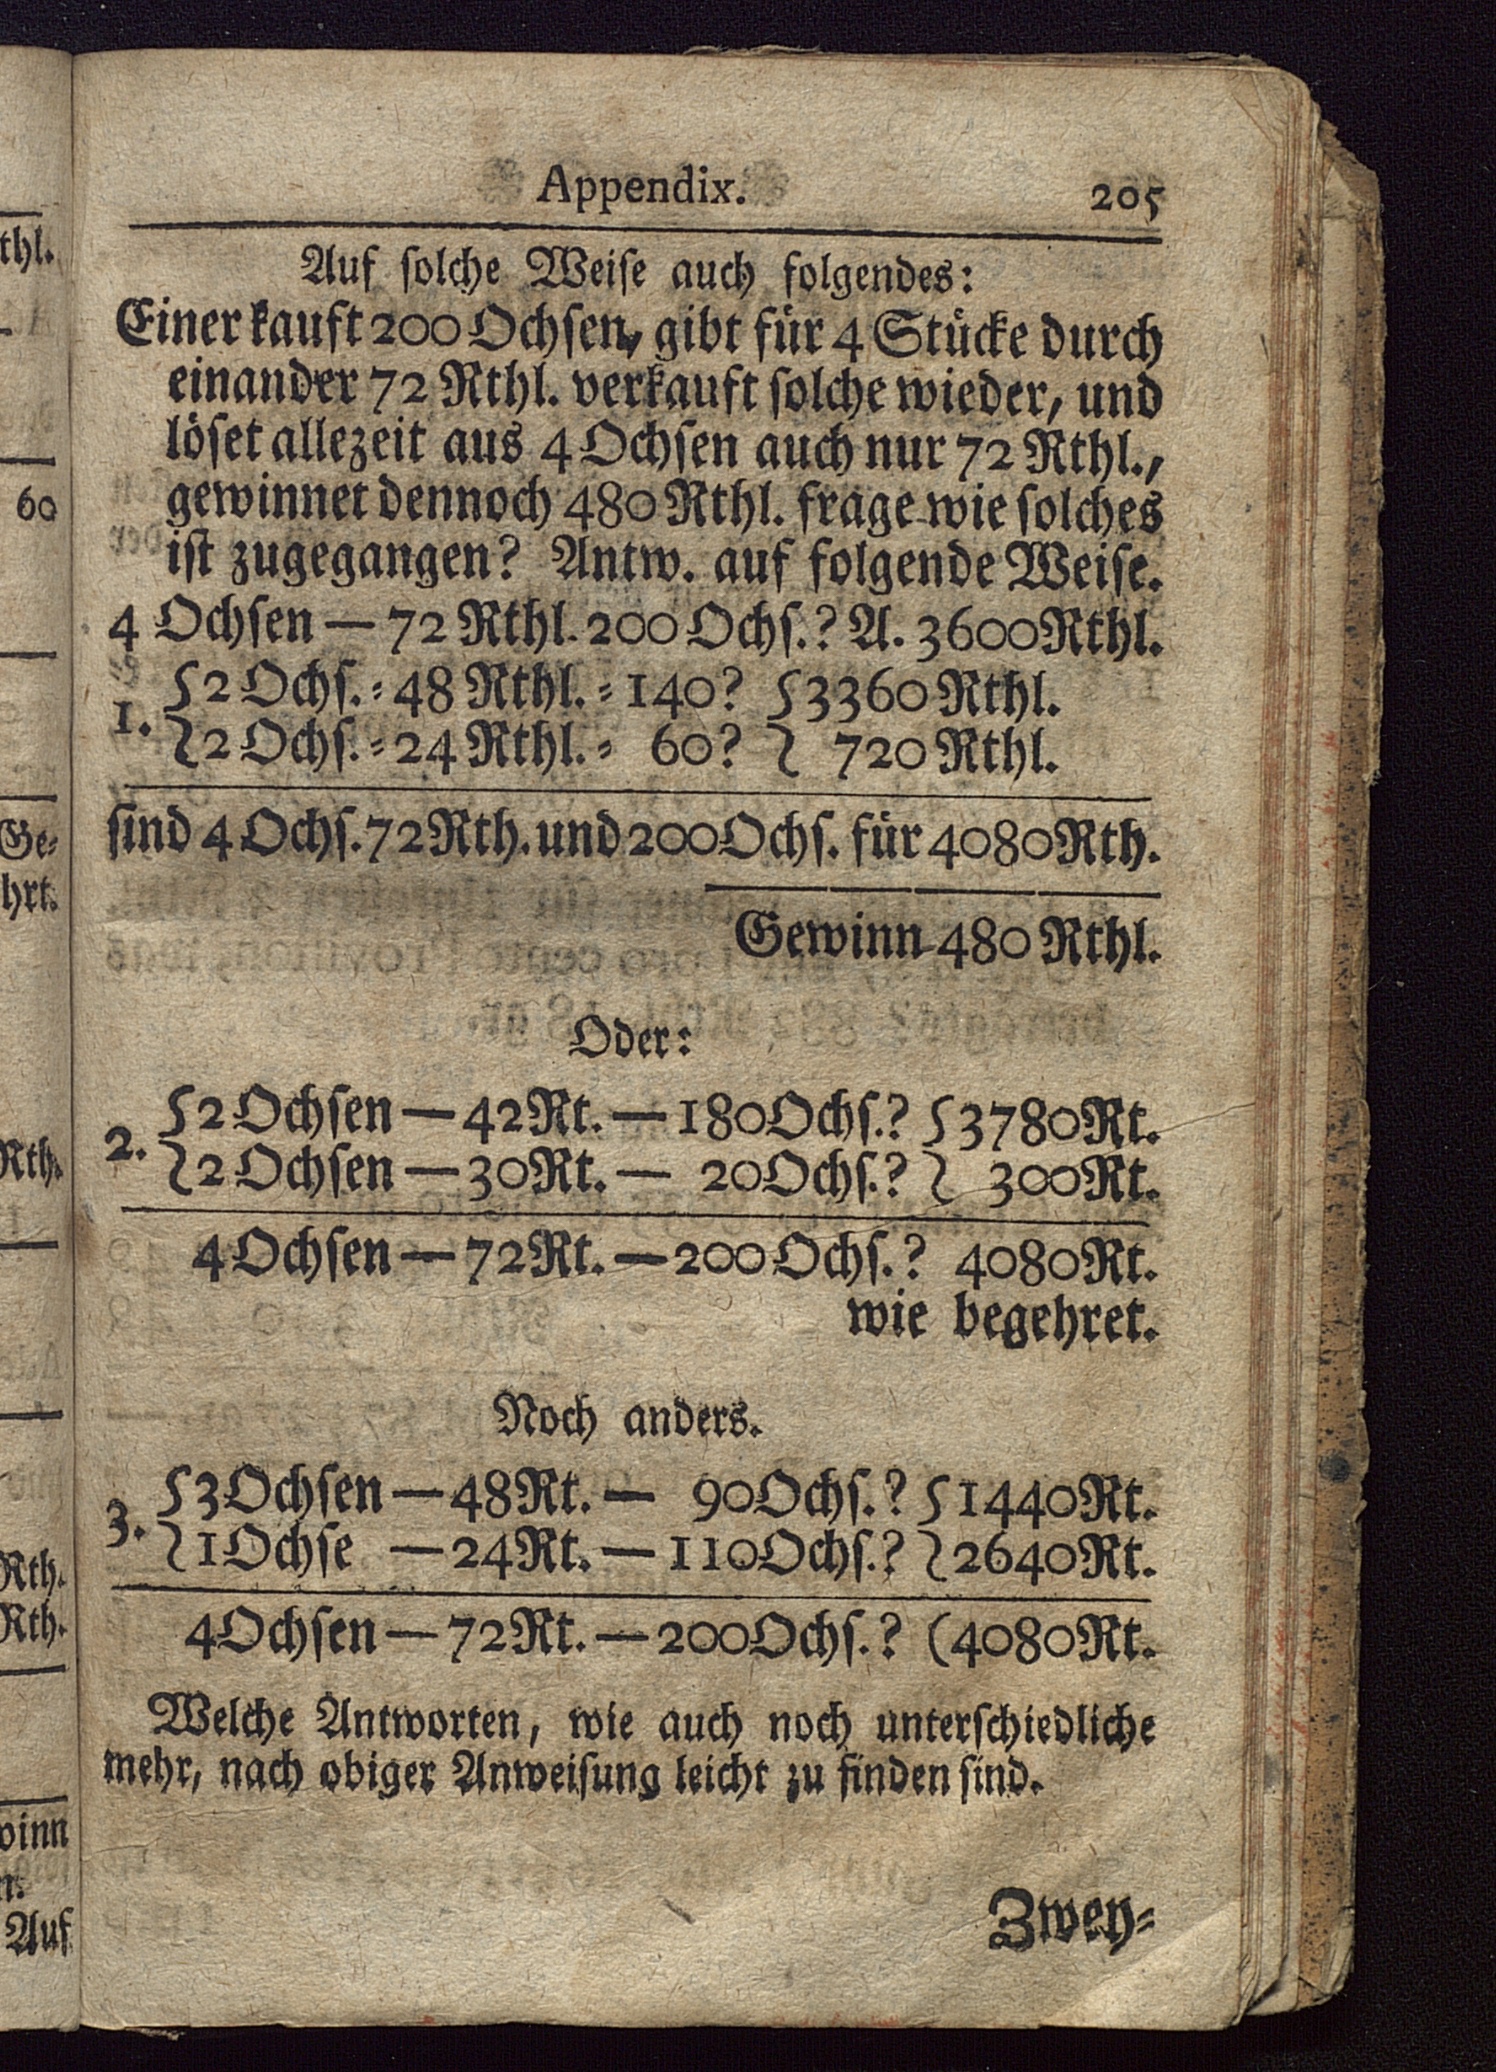 Appendix. 205
Auf solche Weise auch folgendes:
Einer kauft 200 Ochsen, gibt für 4 Stücke durch
einander 72 Rthl. verkauft solche wieder, und
löset allezeit aus 4 Ochsen auch nur 72 Rthl.,
gewinnet dennoch 480 Rthl. frage wie solches
ist zugegangen? Antw. auf folgende Weise.
4 Ochsen — 72 Rthl. 200 Ochs.? A. 3600 Rthl.
1. { 2 Ochs. = 48 Rthl. = 140? { 3360 Rthl.
{ 2 Ochs. = 24 Rthl. = 60? { 720 Rthl.
sind 4 Ochs. 72 Rth. und 200 Ochs. für 4080 Rth.
Gewinn 480 Rthl.
Oder:
2. { 2 Ochsen — 42 Rt. — 180 Ochs.? { 3780 Rt.
{ 2 Ochsen — 30 Rt. — 20 Ochs.? { 300 Rt.
4 Ochsen — 72 Rt. — 200 Ochs.? 4080 Rt.
wie begehret.
Noch anders.
3. { 3 Ochsen — 48 Rt. — 90 Ochs.? { 1440 Rt.
{ 1 Ochse — 24 Rt. — 110 Ochs.? { 2640 Rt.
4 Ochsen — 72 Rt. — 200 Ochs.? (4080 Rt.
Welche Antworten, wie auch noch unterschiedliche
mehr, nach obiger Anweisung leicht zu finden sind.
Zwey=
thl.
60
Ge=
hrt.
Rth.
Rth.
Rth.
winn
Auf